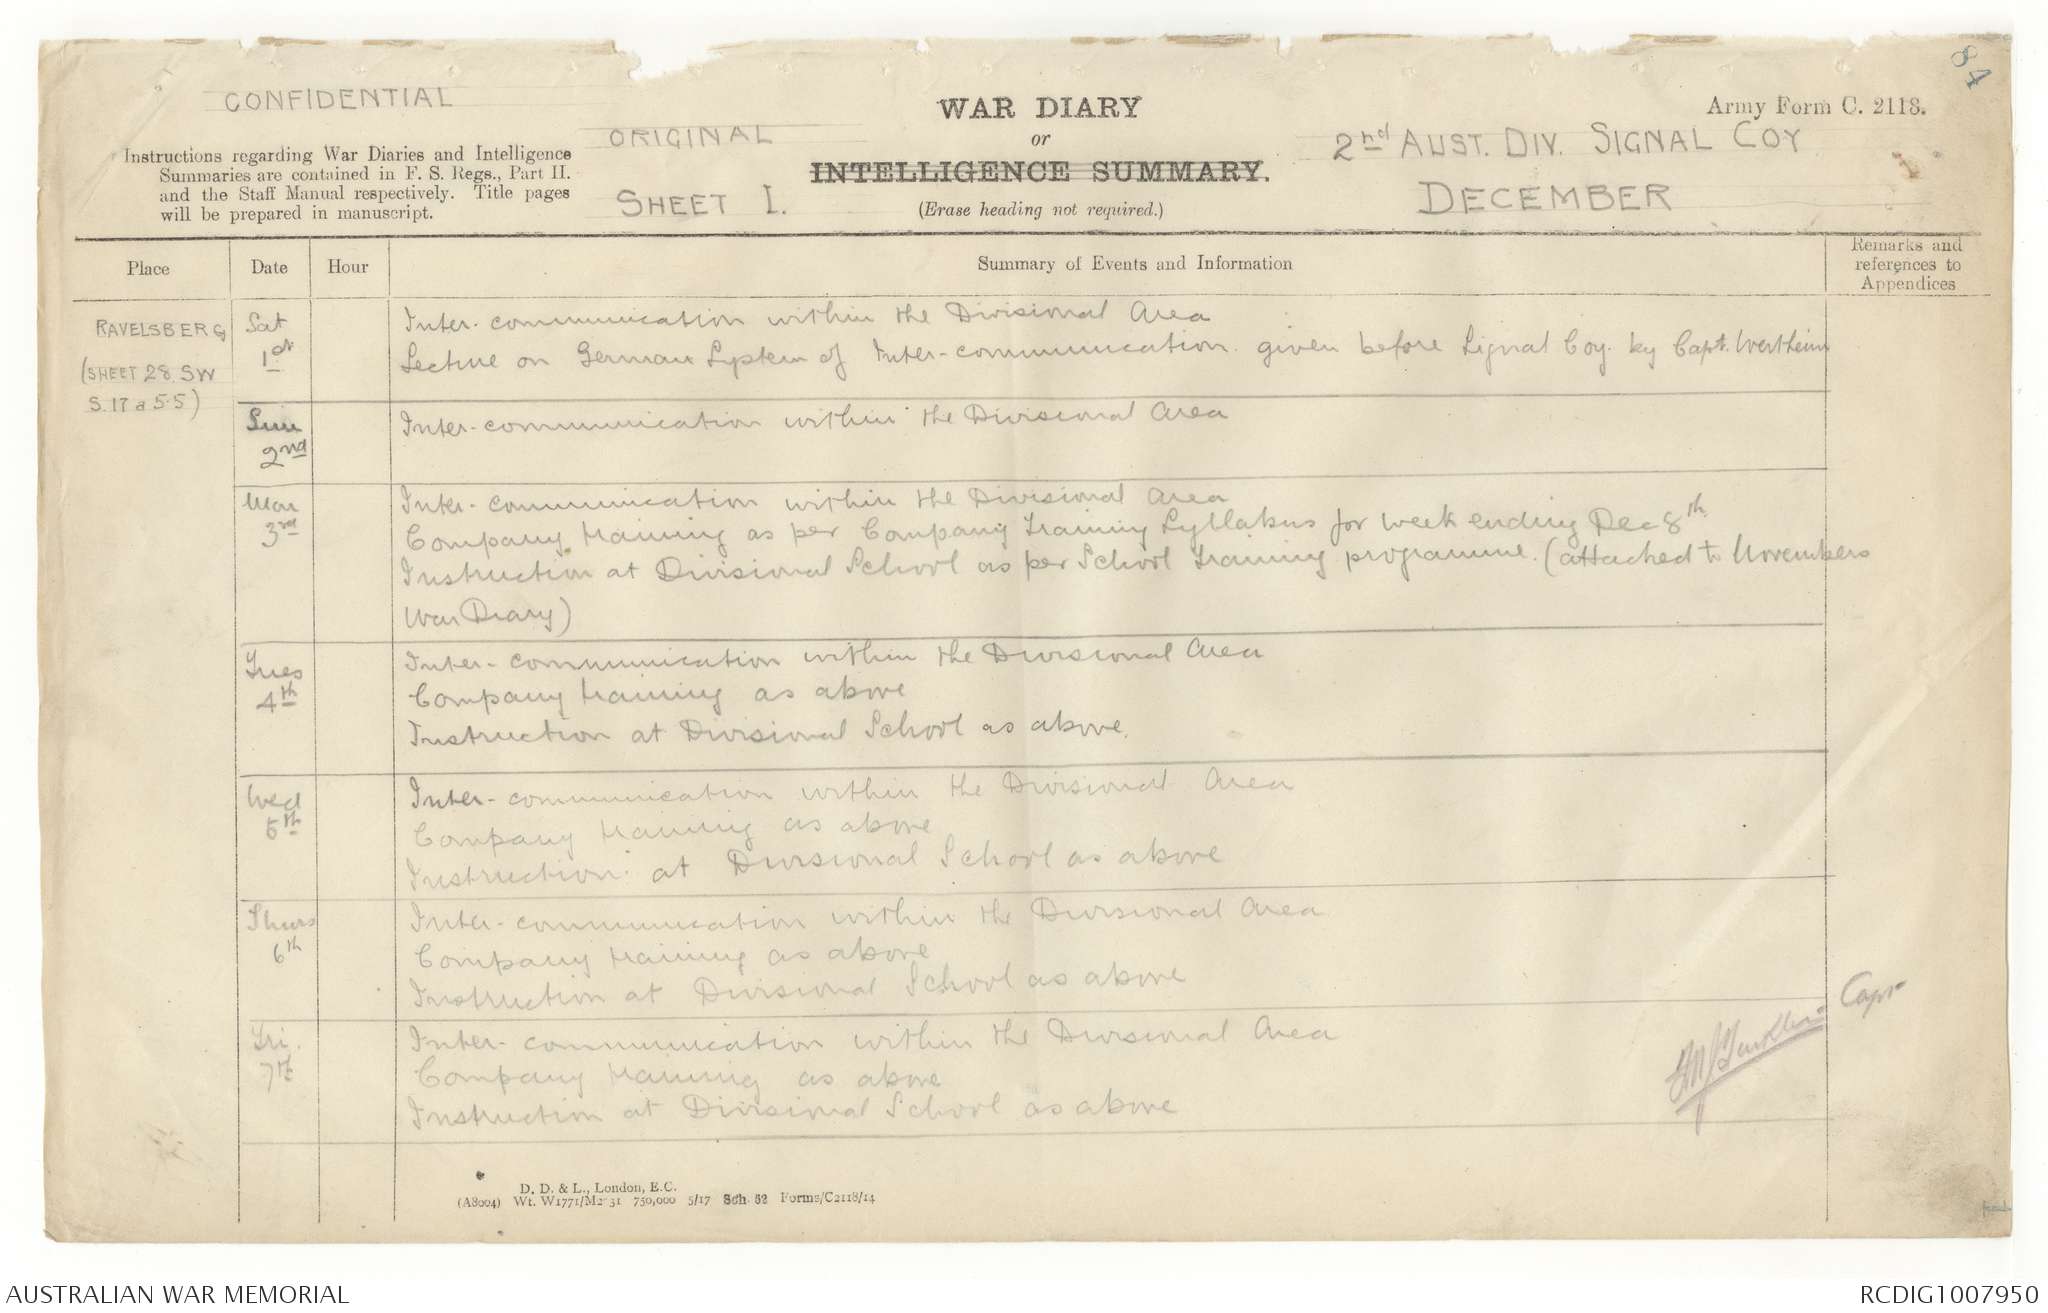 84
CONFIDENTIAL
ORIGINAL
SHEET I.
WAR DIARY
or
INTELLIGENCE SUMMARY.
(Erase heading not required.)
Army Form C. 2118.
2nd AUST. DIV. SIGNAL COY
DECEMBER
Instructions regarding War Diaries and Intelligence
Summaries are contained in F. S. Regs., Part II.
and the Staff Manual respectively. Title pages
will be prepared in manuscript.
Place
Date
Hour
Summary of Events and Information
Remarks and
references to
Appendices
RAVELSBERG
(SHEET 28 SW
S.17 a 5.5)
Sat
1st
Inter-communication within the Divisional Area
Lecture on German System of Inter-communication given before Signal Coy. by Capt. Wertheim
Sun
2nd
Inter-communication within the Divisional Area
Mon
3rd
Inter-communication within the Divisional Area
Company training as per Company Training Syllabus for week ending Dec 8th.
Instruction at Divisional School as per School Training programme. (attached to Novembers
War Diary)
Tues
4th
Inter-communication within the Divisional Area
Company training as above
Instruction at Divisional School as above.
Wed
5th
Inter-communication within the Divisional Area
Company training as above
Instruction at Divisional School as above
Thurs
6th
Inter-communication within the Divisional Area
Company training as above
Instruction at Divisional School as above
Fri.
7th
Inter-communication within the Divisional Area
Company training as above
Instruction at Divisional School as above
Capt
D. D. & L., London, E.C.
(A8004) Wt. W1771/M2 31 750,000 5/17 Sch 52 Forms/C2118/14
AUSTRALIAN WAR MEMORIAL
RCDIG1007950